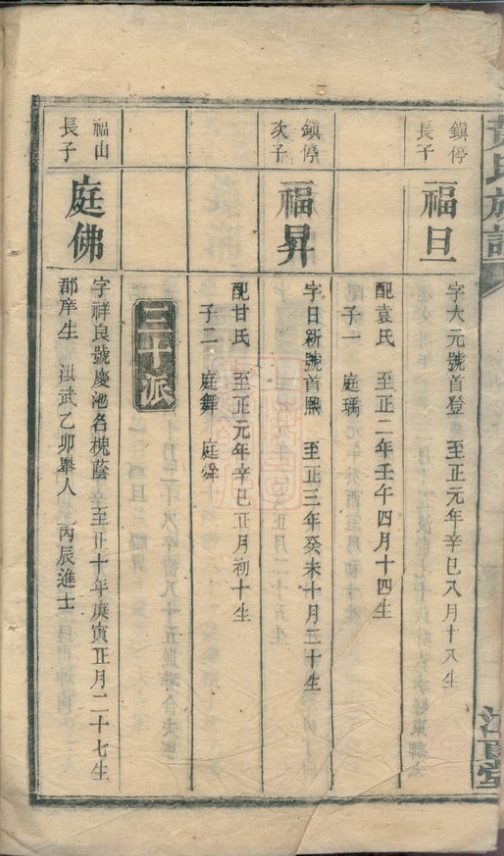 黃氏族譜
江夏堂
鎮停
長子
福旦
字大元號首登 至正元年辛巳八月十八生
配袁氏 至正二年壬午四月十四生
子一 庭瑀
鎮停
次子
福昇
字日新號首熈 至正三年癸未十月二十生
配甘氏 至正元年辛巳正月初十生
子二 庭舞 庭舜
三十派
福山
長子
庭佛
字祥良號慶池名槐蔭 至正十年庚寅正月二十七生
郡庠生 洪武乙卯舉人 丙辰進士